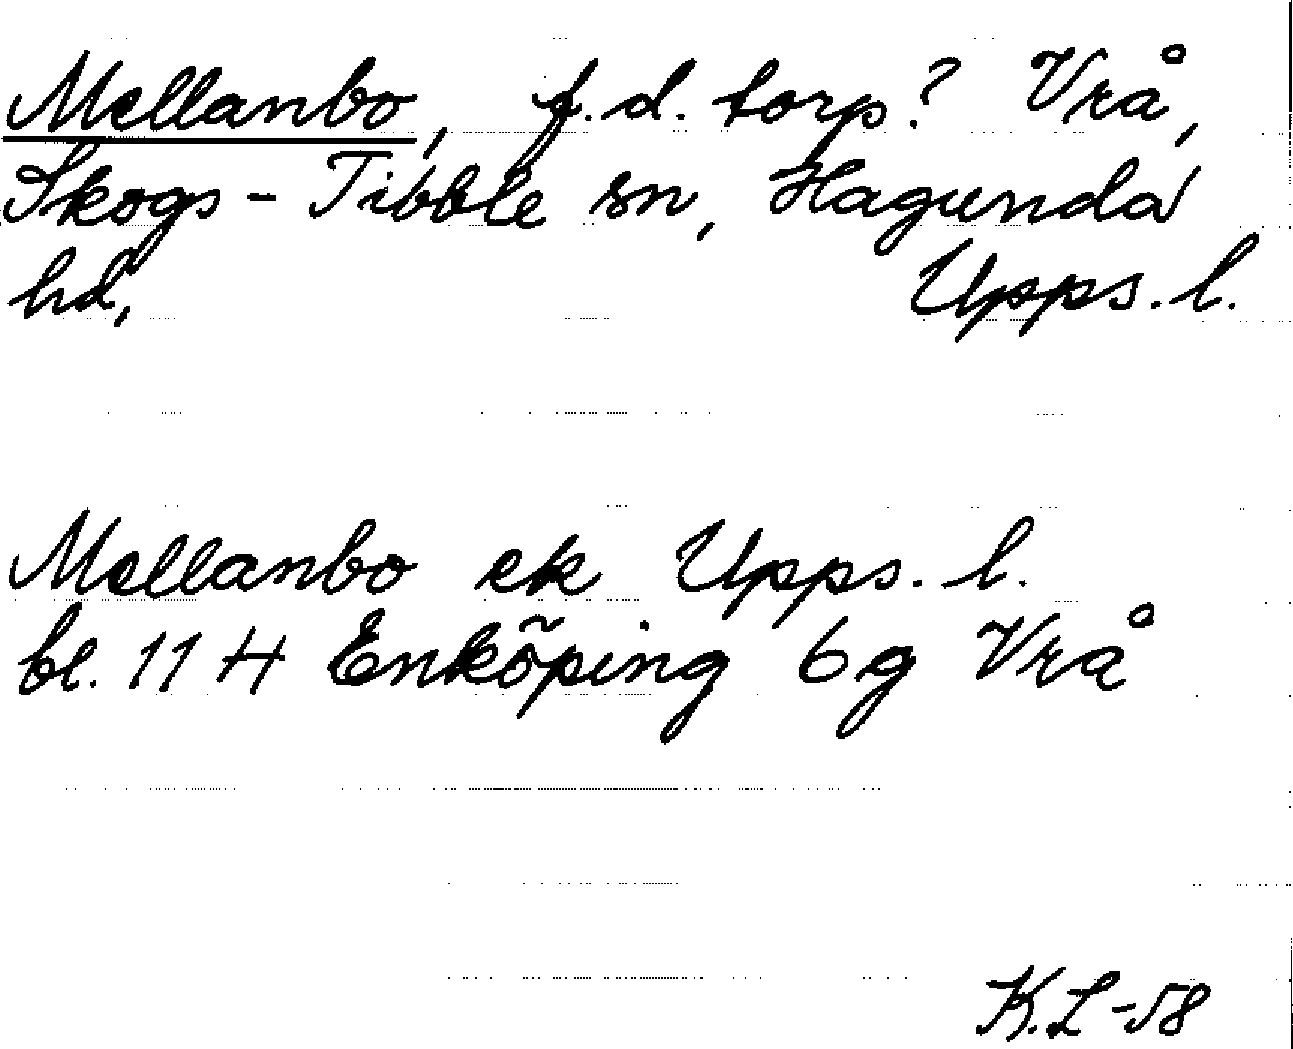 Mellanbo, f.d. torp? Vrå,
Skogs-Tibble sn, Hagunda
hd, Upps. l.
Mellanbo ek Upps. l.
bl. 11 H Enköping 6 g Vrå
K.L -58